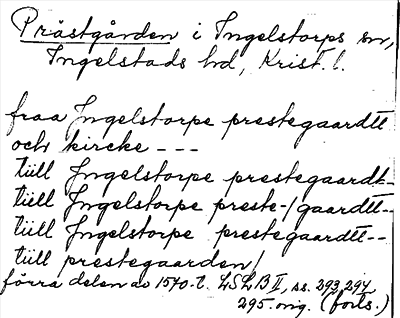 Prästgården i Ingelstorps sn,
Ingelstads hd, Krist. l.
fraa Ingelstorpe prestegaardtt
och kircke ---
tiill Ingelstorpe prestegaardt-
tiill Ingelstorpe preste-/gaardtt--
tiill Ingelstorpe prestegaardtt--
tiill prestegaarden/
förra delen av 1570-t. LSLB II, ss. 293, 294,
295. orig. (forts.)